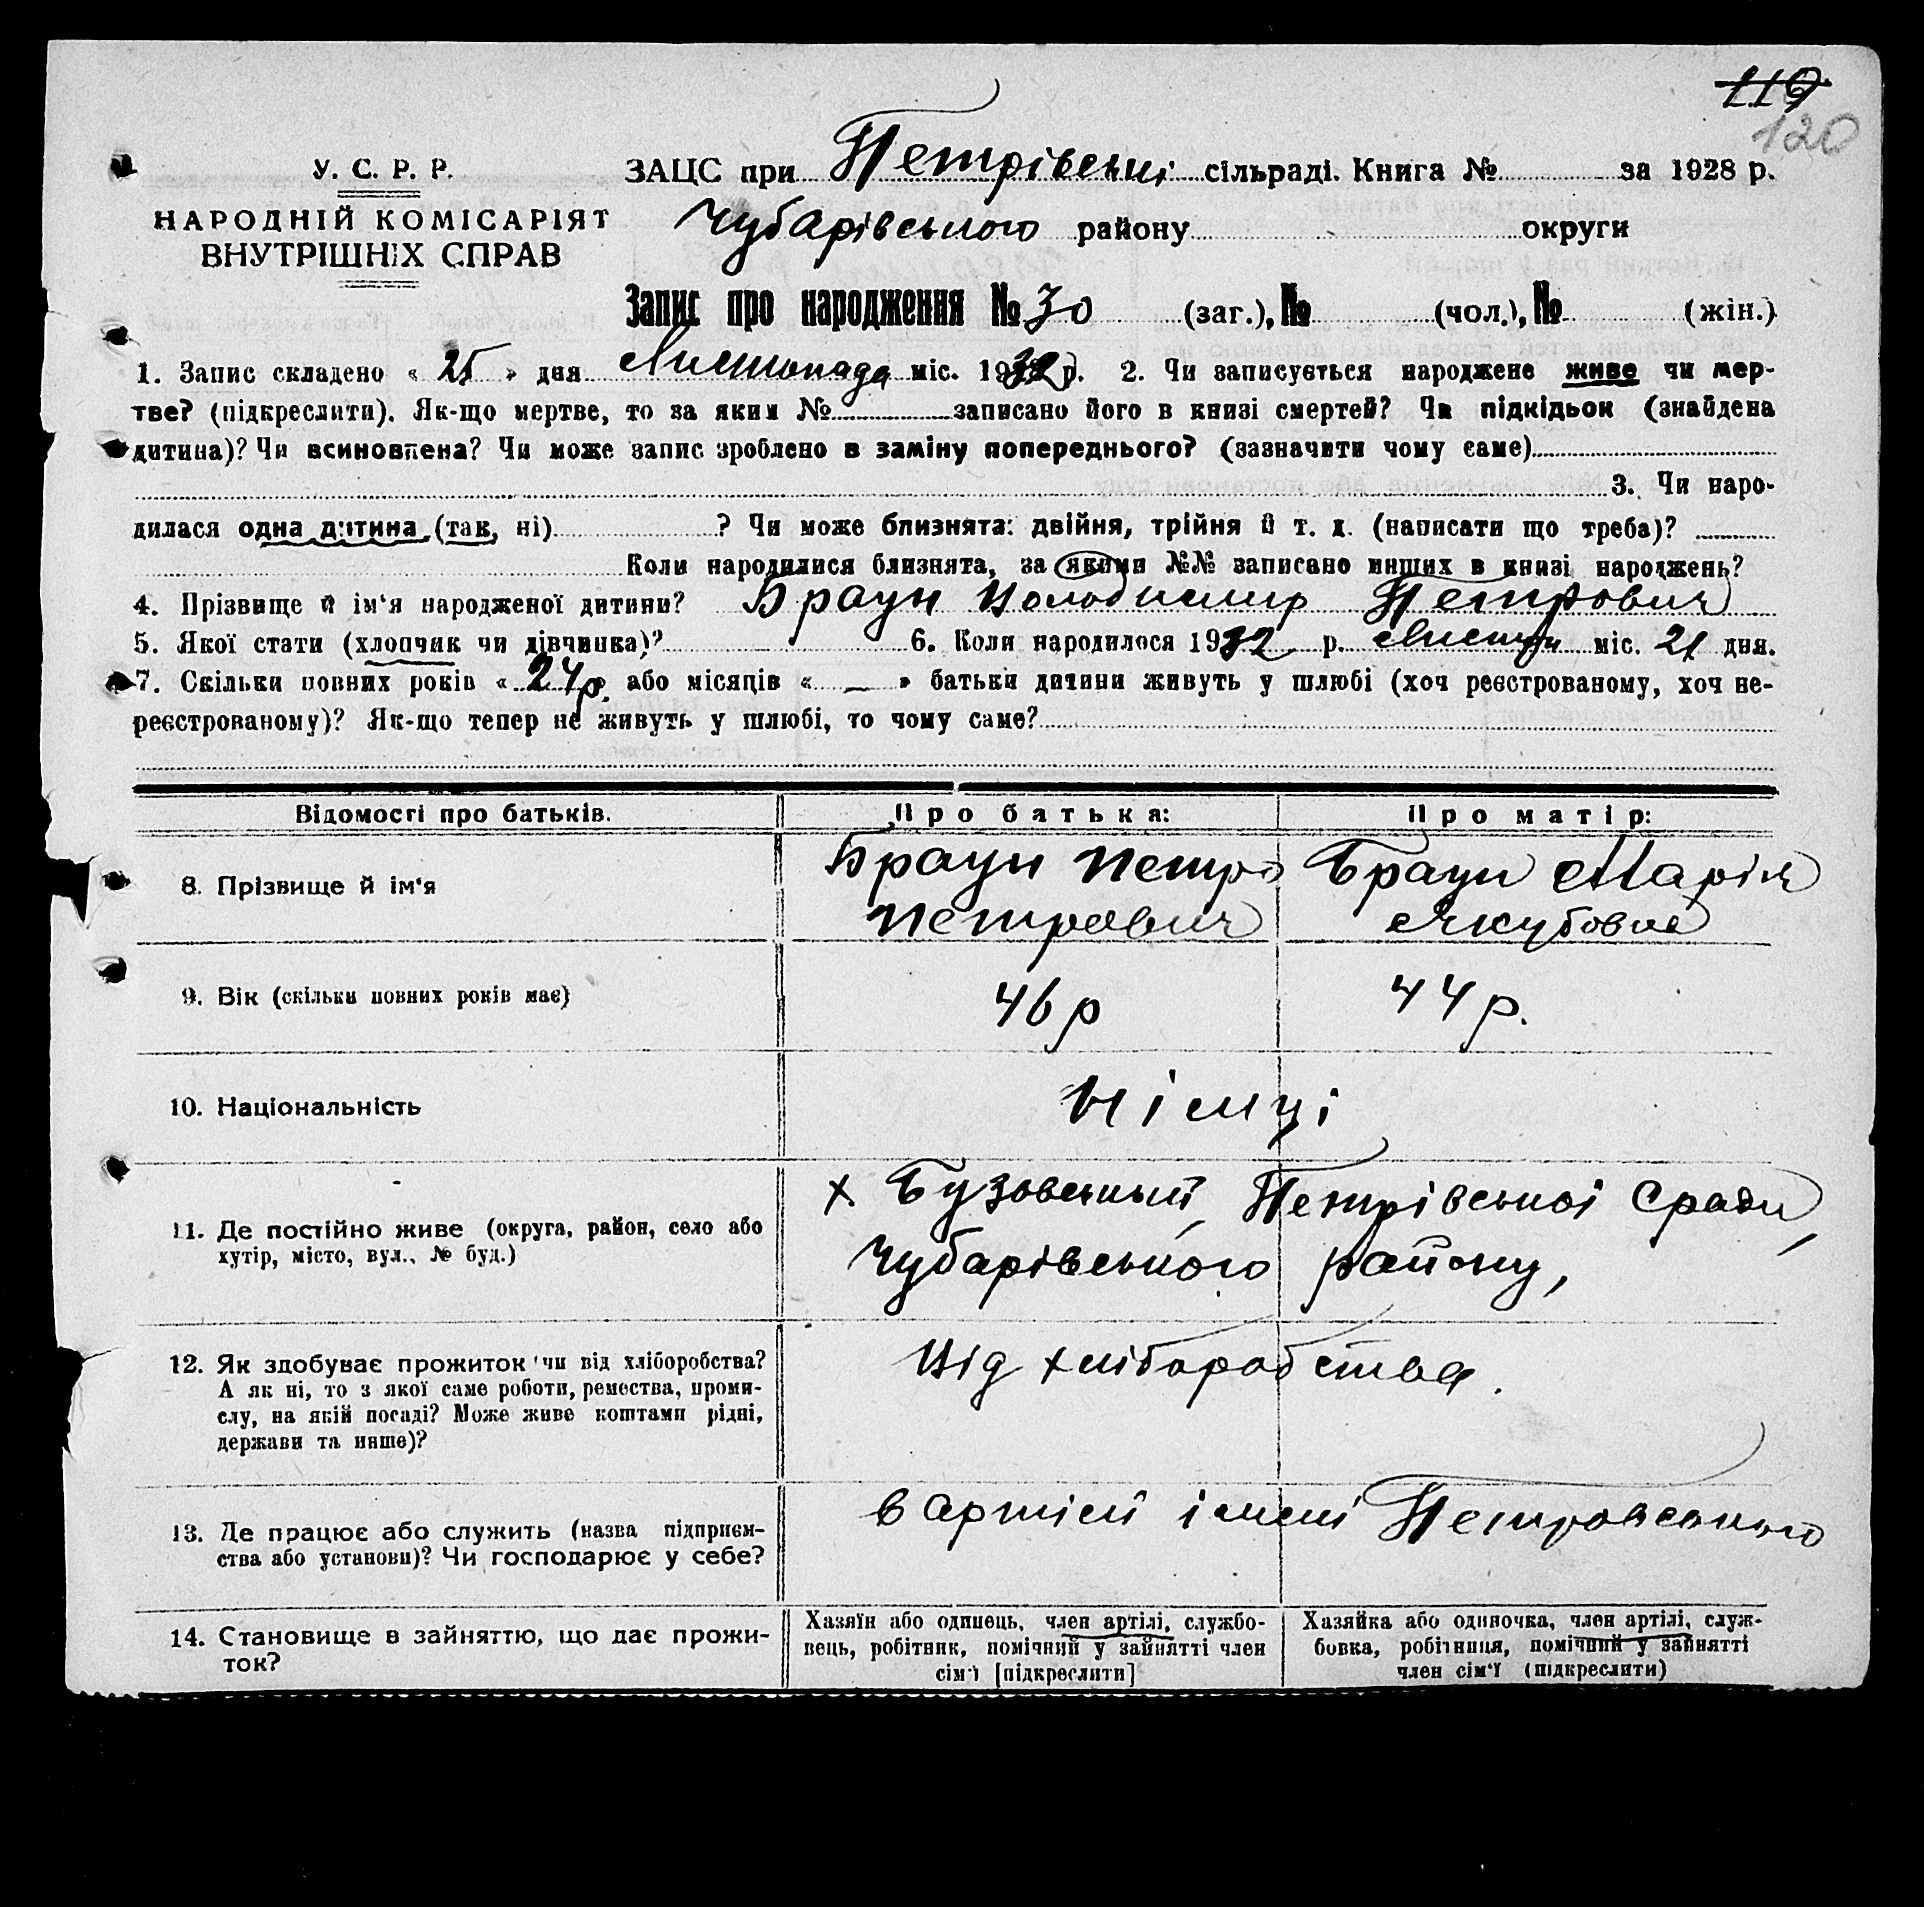 119
120
У. С. Р. Р.
НАРОДНІЙ КОМІСАРІЯТ
ВНУТРІШНІХ СПРАВ
ЗАЦС при Петрівські сільраді. Книга № за 1928 р.
Чубарівського району округи
Запис про народження № 30 (заг.), № (чол.), № (жін.)
1. Запис складено « 25 » дня Листопада міс. 1932 р. 2. Чи записується народжене живе чи мер-
тве? (підкреслити). Як-що мертве, то за яким № записано його в книзі смертей? Чи підкідьок (знайдена
дитина)? Чи всиновлена? Чи може запис зроблено в заміну попереднього? (зазначити чому саме)
3. Чи наро-
дилася одна дитина (так, ні) ? Чи може близнята: двійня, трійня й т. д. (написати що треба)?
Коли народилися близнята, за якими №№ записано инших в книзі народжень?
4. Прізвище й ім'я народженої дитини? Браун Володимир Петрович
5. Якої стати (хлопчик чи дівчинка)? 6. Коли народилося 1932 р. Листоп міс. 21 дня.
7. Скільки повних років « 24 р. » або місяців « — » батьки дитини живуть у шлюбі (хоч реєстрованому, хоч не-
реєстрованому)? Як-що тепер не живуть у шлюбі, то чому саме?
Відомості про батьків. Про батька: Про матір:
8. Прізвище й ім'я Браун Петро Петрович Браун Марія Якубовна
9. Вік (скільки повних років має) 46 р 44 р.
10. Національність Німці
11. Де постійно живе (округа, район, село або
хутір, місто, вул., № буд.)
х. Бузовський, Петрівської Сради,
Чубарівського району,
12. Як здобуває прожиток чи від хліборобства?
А як ні, то з якої саме роботи, ремества, проми-
слу, на якій посаді? Може живе коштами рідні,
держави та инше)?
Від хліборобства.
13. Де працює або служить (назва підприєм-
ства або установи)? Чи господарює у себе?
в артілі імені Петровського
14. Становище в зайняттю, що дає прожи-
ток?
Хазяїн або одинець, член артілі, службо-
вець, робітник, помічний у зайнятті член
сім'ї [підкреслити]
Хазяйка або одиночка, член артілі, служ-
бовка, робітниця, помічний у зайнятті
член сім'ї (підкреслити)